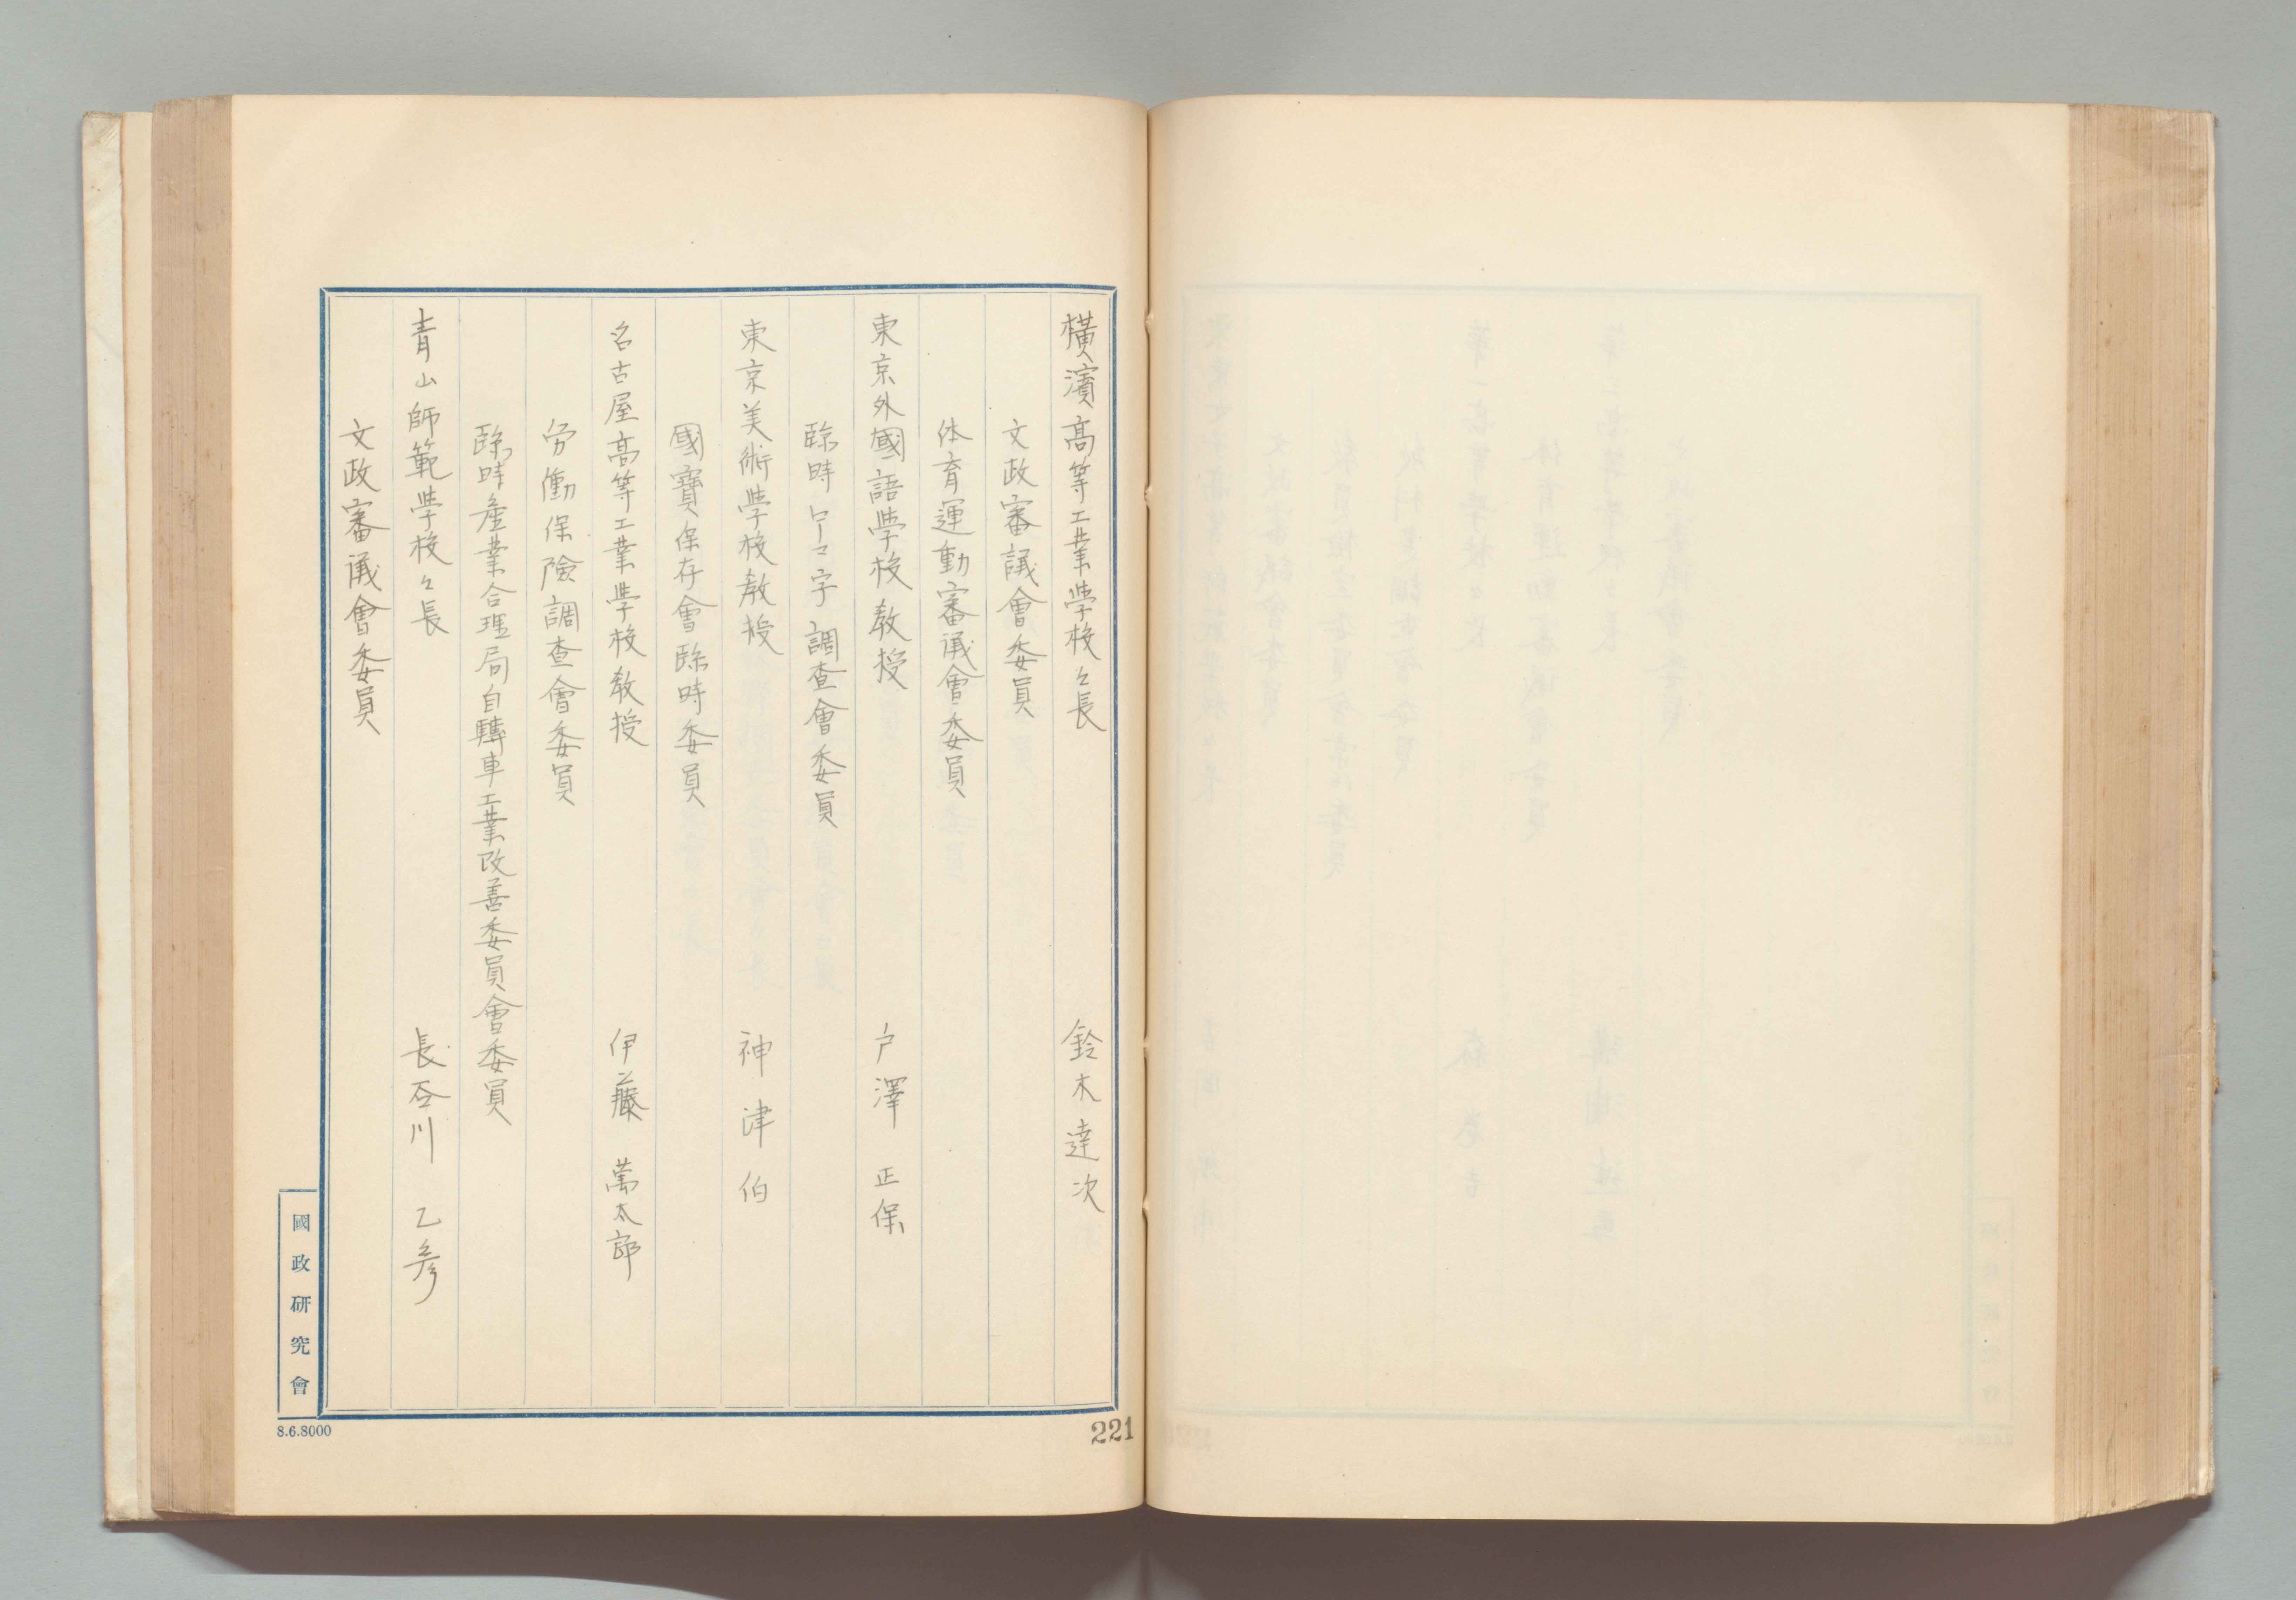 横濱高等工業学校々長　鈴木達次
文政審議會委員
体育運動審議會委員
東京外國語学校教授　戸澤正保
臨時ローマ字調査會委員
東京美術学校教授　神津伯
國寶保存會臨時委員
名古屋高等工業学校教授　伊藤萬太郎
労働保險調査會委員
臨時産業合理局自轉車工業改善委員會委員
青山師範学校々長　長谷川乙彦
文政審議會委員
國政研究會
8.6.8000
221